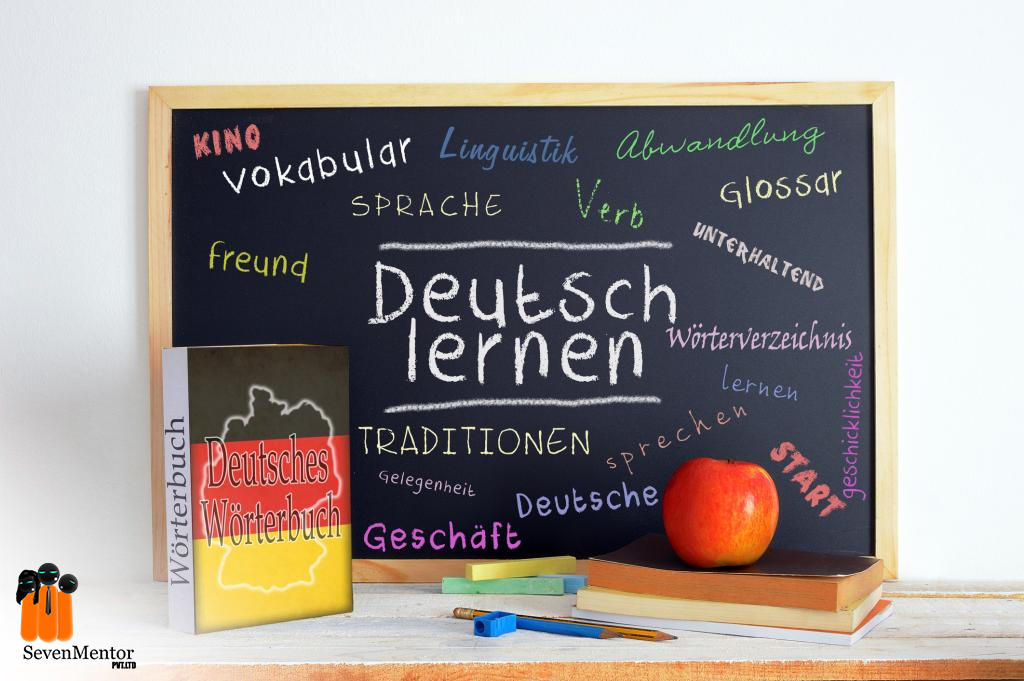 KINO
Vokabular
Linguistik
Abwandlung
SPRACHE
Verb
Glossar
freund
UNTERHALTEND
Deutsch
lernen
Wörterverzeichnis
lernen
geschicklichkeit
TRADITIONEN
sprechen
START
Gelegenheit
Deutsche
Geschäft
Wörterbuch
Deutsches
Wörterbuch
SevenMentor
PVT.LTD